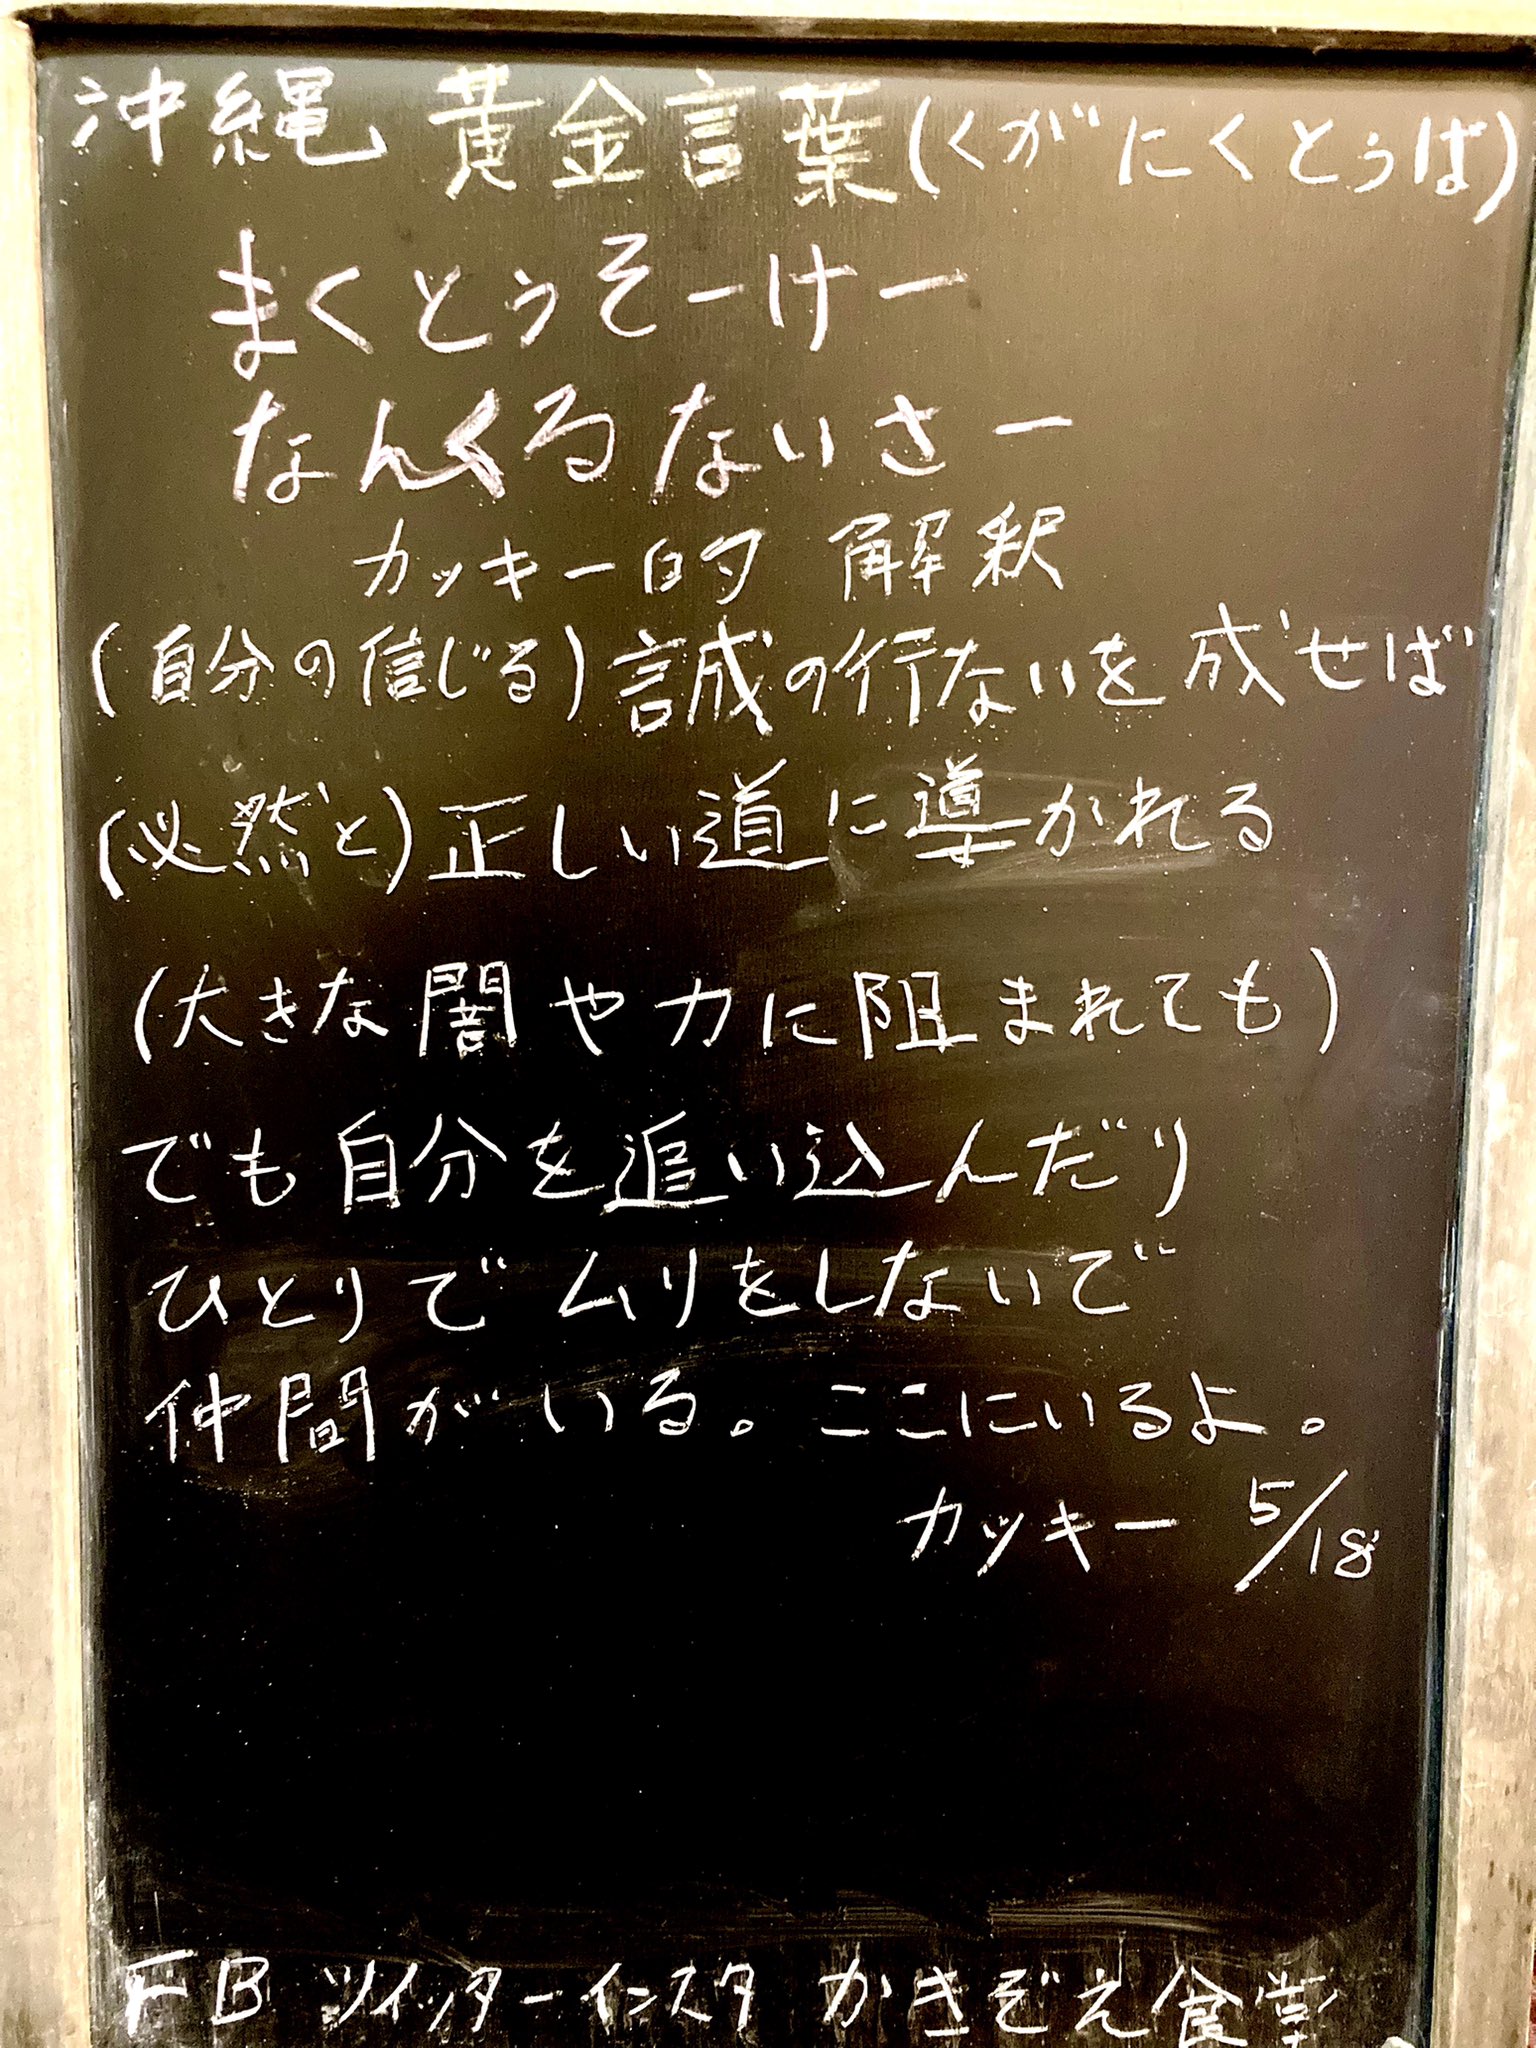 沖縄 黄金言葉(くがにくとぅば)
まくとぅそーけー
なんくるないさー
カッキー的 解釈
(自分の信じる)誠の行ないを成せば
(必然と)正しい道に導かれる
(大きな闇や力に阻まれても)
でも自分を追い込んだり
ひとりでムリをしないで
仲間がいる。ここにいるよ。
カッキー 5/18
FB ツイッターインスタ かきぞえ食堂